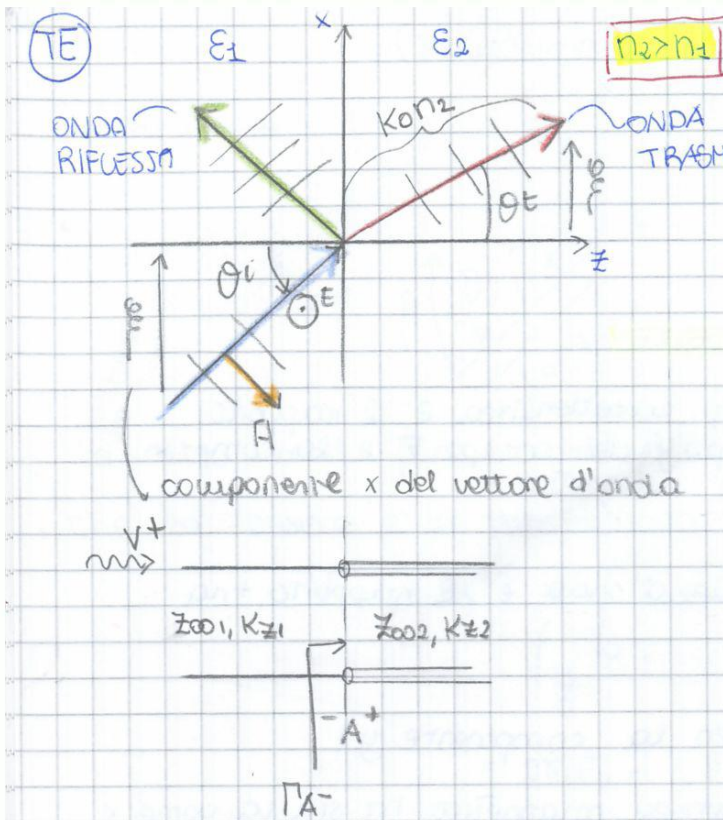 TE
ε1
x
ε2
n2>n1
ONDA
RIFLESSA
k0n2
ONDA
TRASM
ξ
θt
z
θi
E
ξ
H
componente x del vettore d'onda
V+
Z∞1, Kz1
Z∞2, Kz2
- A +
ΓA-